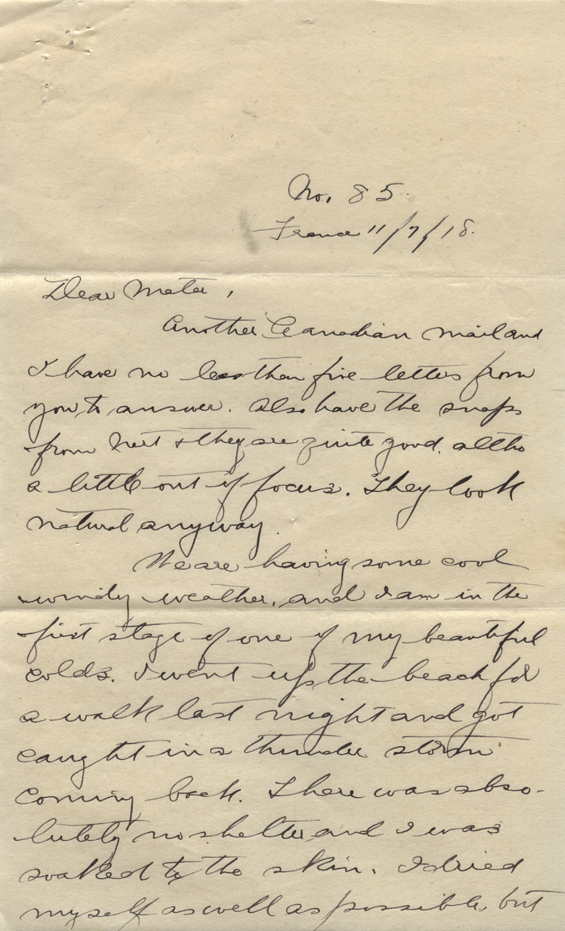 No. 85.
France 11/7/18.
Dear Mater,
Another Canadian mail and
I have no less than five letters from
you to answer. Also have the snaps
from Nert & they are quite good, altho
a little out of focus. They look
natural anyway.
We are having some cool
windy weather, and I am in the
first stage of one of my beautiful
colds. I went up the beach for
a walk last night and got
caught in a thunder storm
coming back. There was abso-
lutely no shelter and I was
soaked to the skin. I dried
myself as well as possible, but